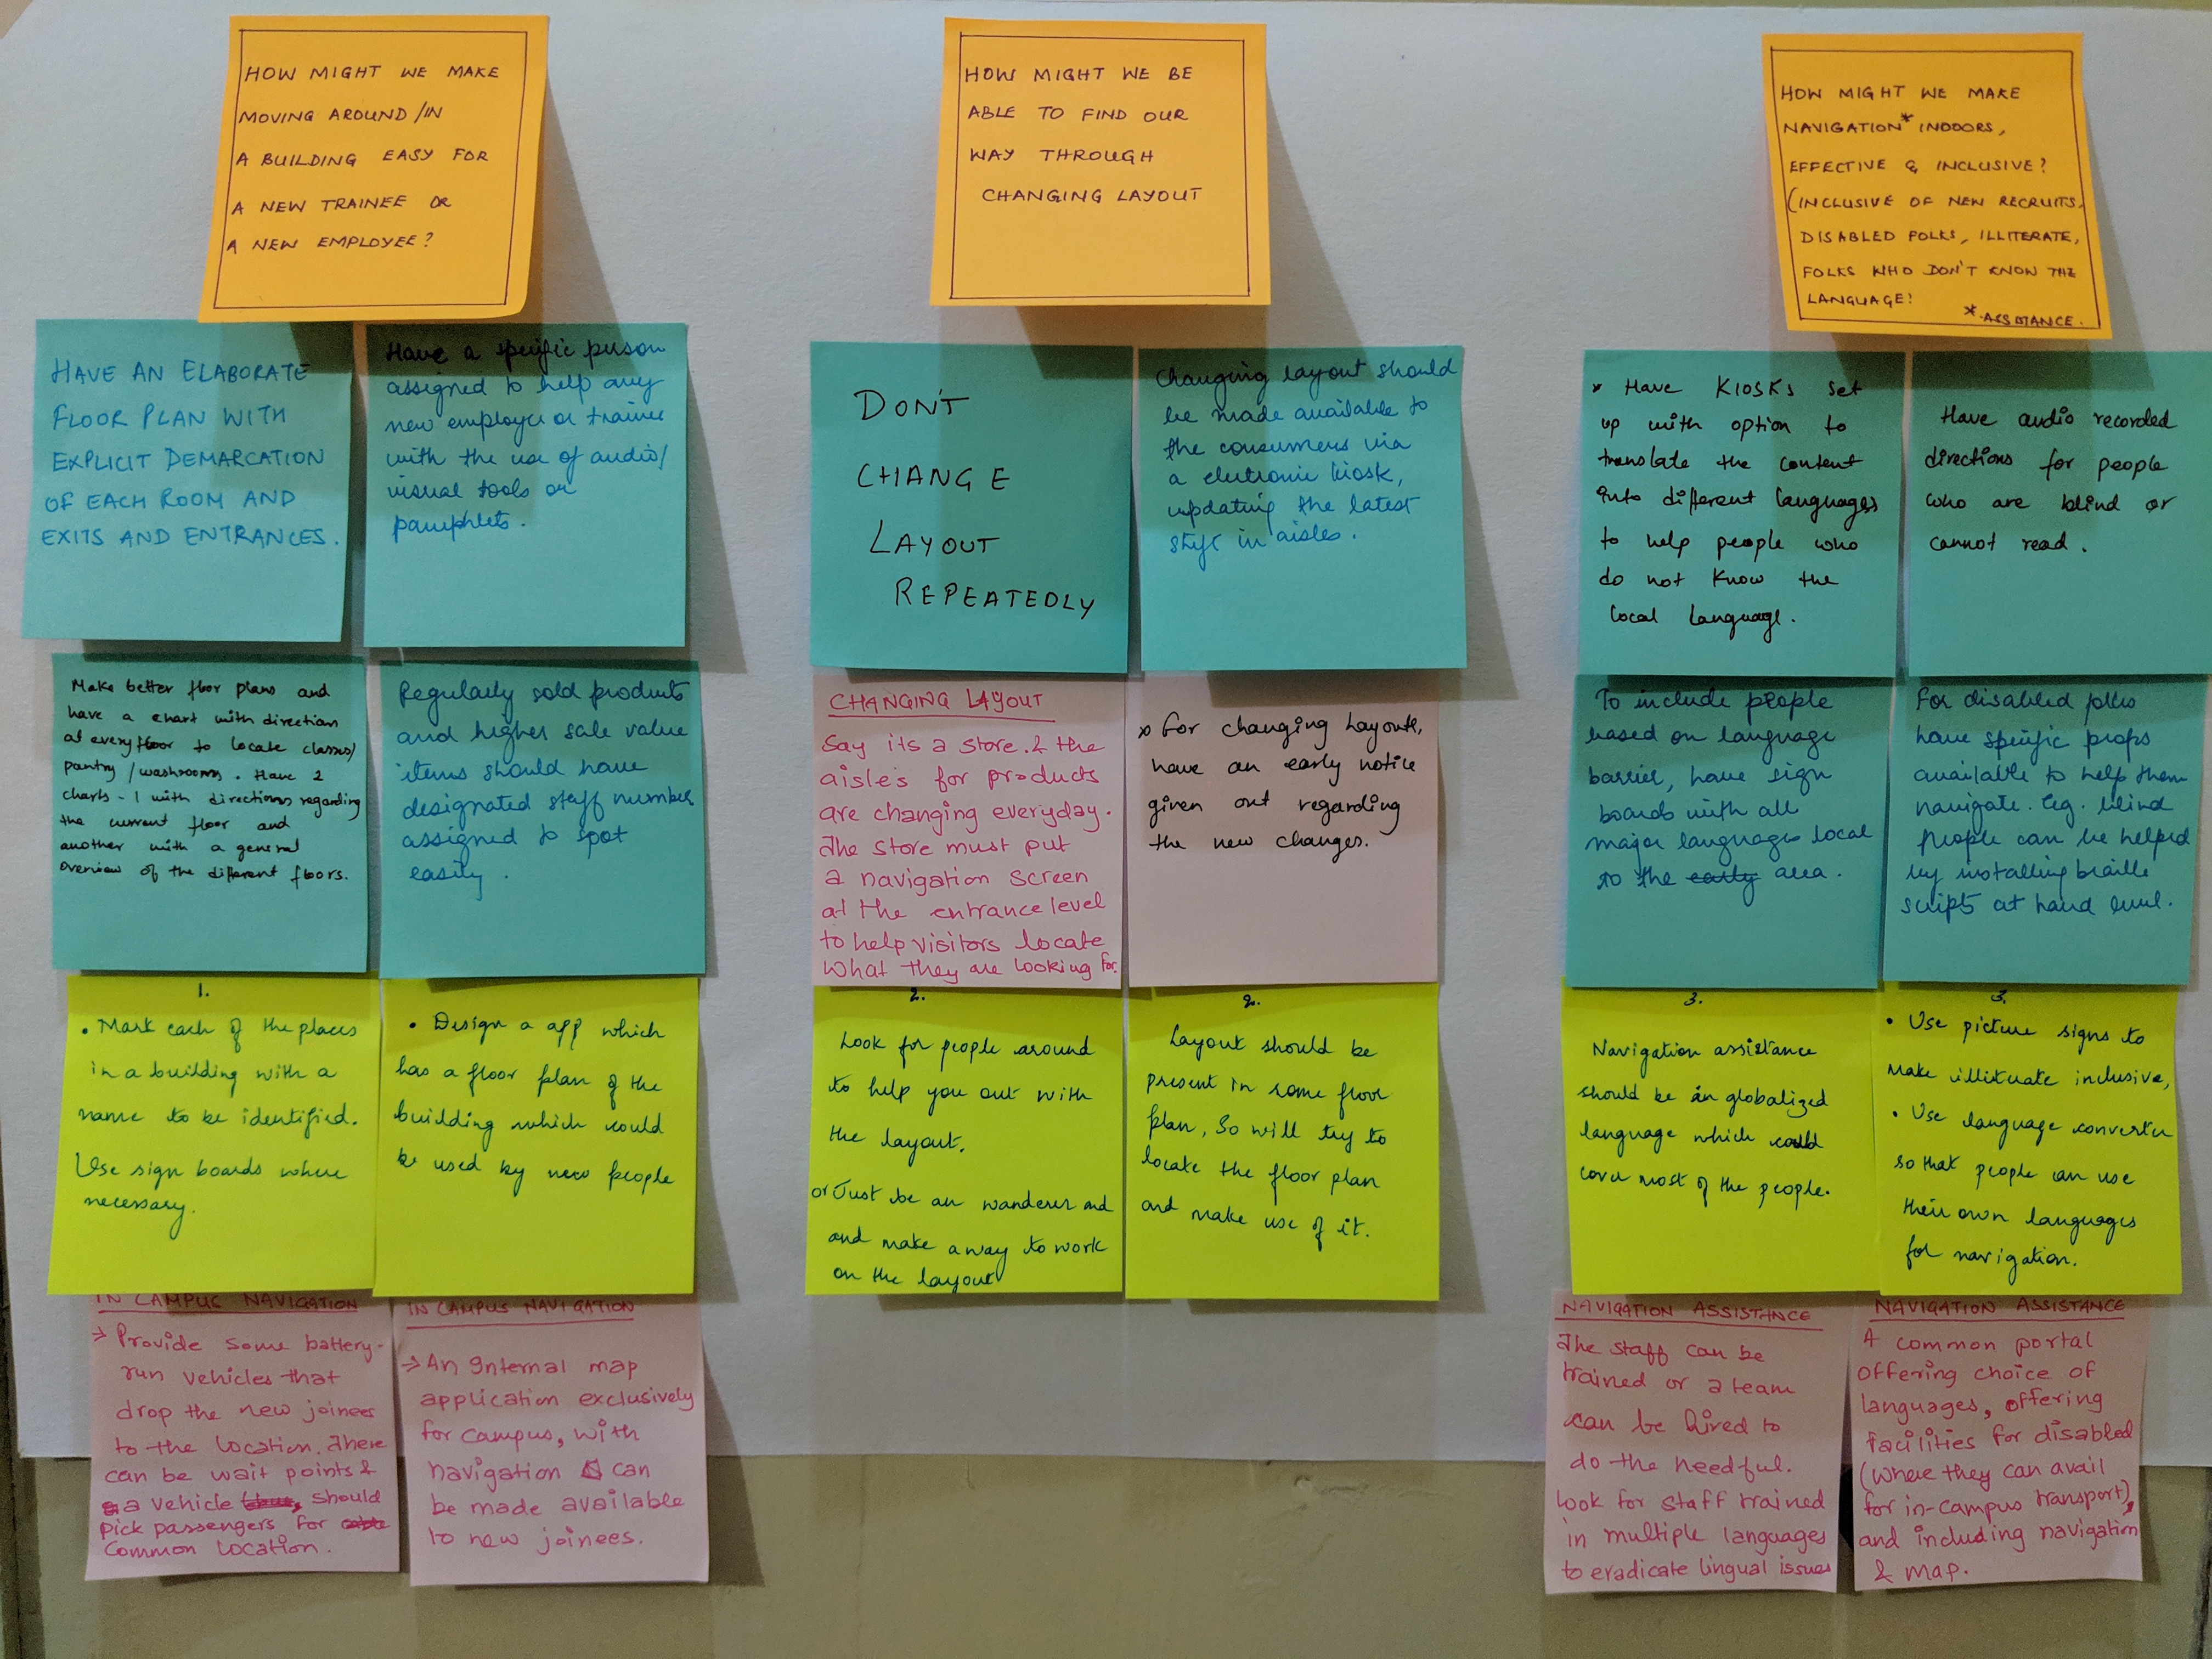 HOW MIGHT WE MAKE
MOVING AROUND/IN
A BUILDING EASY FOR
A NEW TRAINEE OR
A NEW EMPLOYEE?
HAVE AN ELABORATE
FLOOR PLAN WITH
EXPLICIT DEMARCATION
OF EACH ROOM AND
EXITS AND ENTRANCES.
Have a specific person
assigned to help any
new employee or trainee
with the use of audio/
visual tools or
pamphlets.
Make better floor plans and
have a chart with directions
at every floor to locate classes/
pantry/washrooms. Have 2
charts - 1 with directions regarding
the current floor and
another with a general
overview of the different floors.
Regularly sold products
and higher sale value
items should have
designated staff number
assigned to spot
easily.
1.
• Mark each of the places
in a building with a
name to be identified.
Use sign boards where
necessary.
• Design a app which
has a floor plan of the
building which could
be used by new people
IN CAMPUS NAVIGATION
→ Provide some battery-
run vehicles that
drop the new joinees
to the location. There
can be wait points &
a vehicle should
pick passengers for
common location.
IN CAMPUS NAVIGATION
→ An Internal map
application exclusively
for campus, with
navigation can
be made available
to new joinees.
HOW MIGHT WE BE
ABLE TO FIND OUR
WAY THROUGH
CHANGING LAYOUT
DON'T
CHANGE
LAYOUT
REPEATEDLY
Changing layout should
be made available to
the consumers via
a electronic kiosk,
updating the latest
in aisles.
CHANGING LAYOUT
Say its a store. & the
aisles for products
are changing everyday.
The store must put
a navigation screen
at the entrance level
to help visitors locate
what they are looking for.
* For changing layouts,
have an early notice
given out regarding
the new changes.
2.
Look for people around
to help you out with
the layout.
or Just be an wanderer and
and make a way to work
on the layout
2.
Layout should be
present in some floor
plan, So will try to
locate the floor plan
and make use of it.
HOW MIGHT WE MAKE
NAVIGATION* INDOORS,
EFFECTIVE & INCLUSIVE?
(INCLUSIVE OF NEW RECRUITS,
DISABLED FOLKS, ILLITERATE,
FOLKS WHO DON'T KNOW THE
LANGUAGE?
*ASSISTANCE.
* Have KIOSKS set
up with option to
translate the content
into different languages
to help people who
do not know the
local language.
Have audio recorded
directions for people
who are blind or
cannot read.
To include people
based on language
barrier, have sign
boards with all
major languages local
to the early area.
For disabled folks
have specific props
available to help them
navigate. Eg. blind
people can be helped
by installing braille
scripts at hand level.
3.
Navigation assistance
should be in globalized
language which could
cover most of the people.
3.
• Use picture signs to
make illiterate inclusive,
• Use language converter
so that people can use
their own languages
for navigation.
NAVIGATION ASSISTANCE
The staff can be
trained or a team
can be hired to
do the needful.
Look for staff trained
in multiple languages
to eradicate lingual issues
NAVIGATION ASSISTANCE
A common portal
offering choice of
languages, offering
facilities for disabled
(where they can avail
for in-campus transport),
and including navigation
& map.